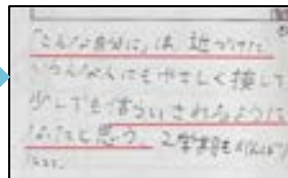 「こんな自分に」は 近づけた
いろんな人にもやさしく接して
少しでも信らいされるように
なったと思う。2学期も